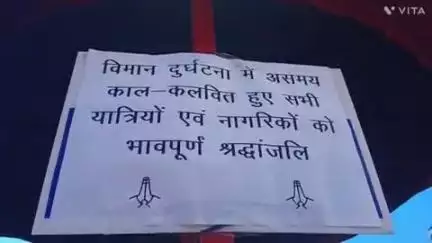 VITA
विमान दुर्घटना में असमय
काल-कलवित हुए सभी
यात्रियों एवं नागरिकों को
भावपूर्ण श्रद्धांजलि